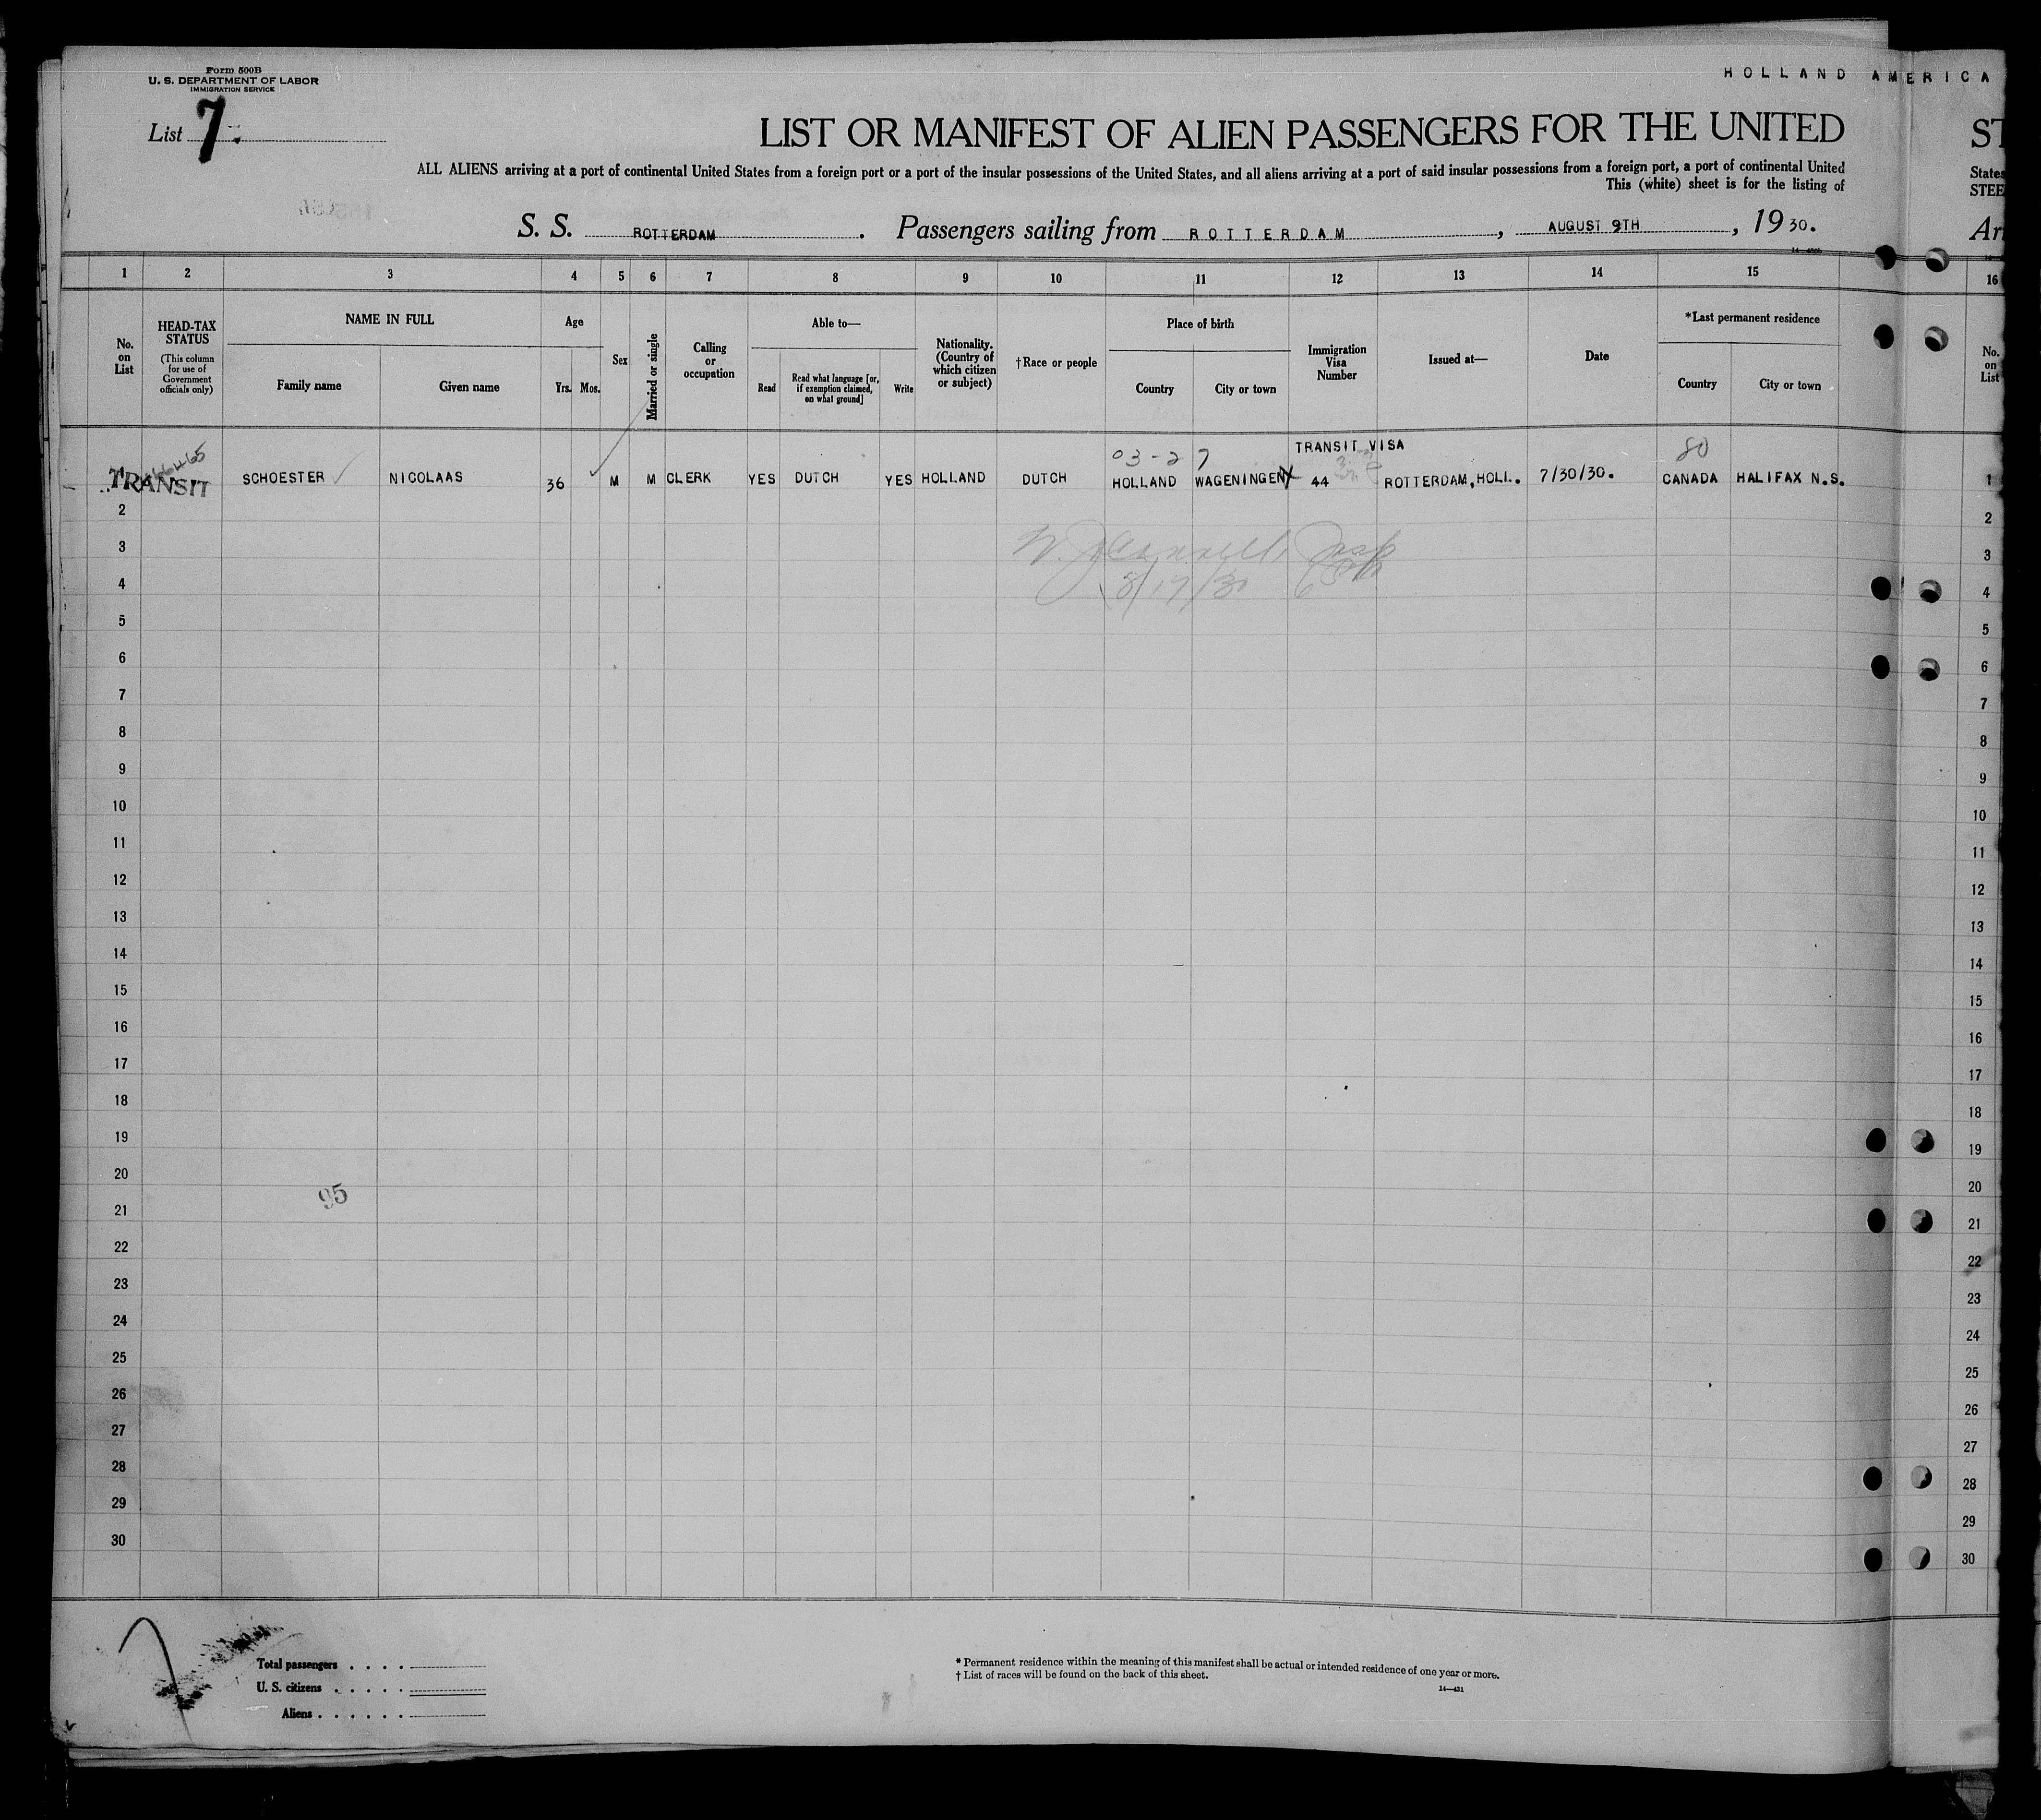 Form 500B
U. S. DEPARTMENT OF LABOR
IMMIGRATION SERVICE
HOLLAND AMERICA
List 7
LIST OR MANIFEST OF ALIEN PASSENGERS FOR THE UNITED
ST
ALL ALIENS arriving at a port of continental United States from a foreign port or a port of the insular possessions of the United States, and all aliens arriving at a port of said insular possessions from a foreign port, a port of continental United
States
This (white) sheet is for the listing of
STEE
S. S. ROTTERDAM. Passengers sailing from ROTTERDAM, AUGUST 9TH, 1930.
Ar
1 2 3 4 5 6 7 8 9 10 11 12 13 14 15 16
No. on List
HEAD-TAX STATUS
(This column for use of Government officials only)
NAME IN FULL
Family name Given name
Age
Yrs. Mos.
Sex
Married or single
Calling or occupation
Able to—
Read
Read what language [or, if exemption claimed, on what ground]
Write
Nationality. (Country of which citizen or subject)
†Race or people
Place of birth
Country City or town
Immigration Visa Number
Issued at—
Date
*Last permanent residence
Country City or town
No. on List
03-27 TRANSIT VISA 80
TRANSIT SCHOESTER NICOLAAS 36 M M CLERK YES DUTCH YES HOLLAND DUTCH HOLLAND WAGENINGEN 44 ROTTERDAM, HOLL. 7/30/30. CANADA HALIFAX N.S. 1
2 2
3 3
8/17/30
4 4
5 5
6 6
7 7
8 8
9 9
10 10
11 11
12 12
13 13
14 14
15 15
16 16
17 17
18 18
19 19
20 20
95
21 21
22 22
23 23
24 24
25 25
26 26
27 27
28 28
29 29
30 30
Total passengers . . . .
U. S. citizens . . . . .
Aliens . . . . . .
* Permanent residence within the meaning of this manifest shall be actual or intended residence of one year or more.
† List of races will be found on the back of this sheet.
14—431